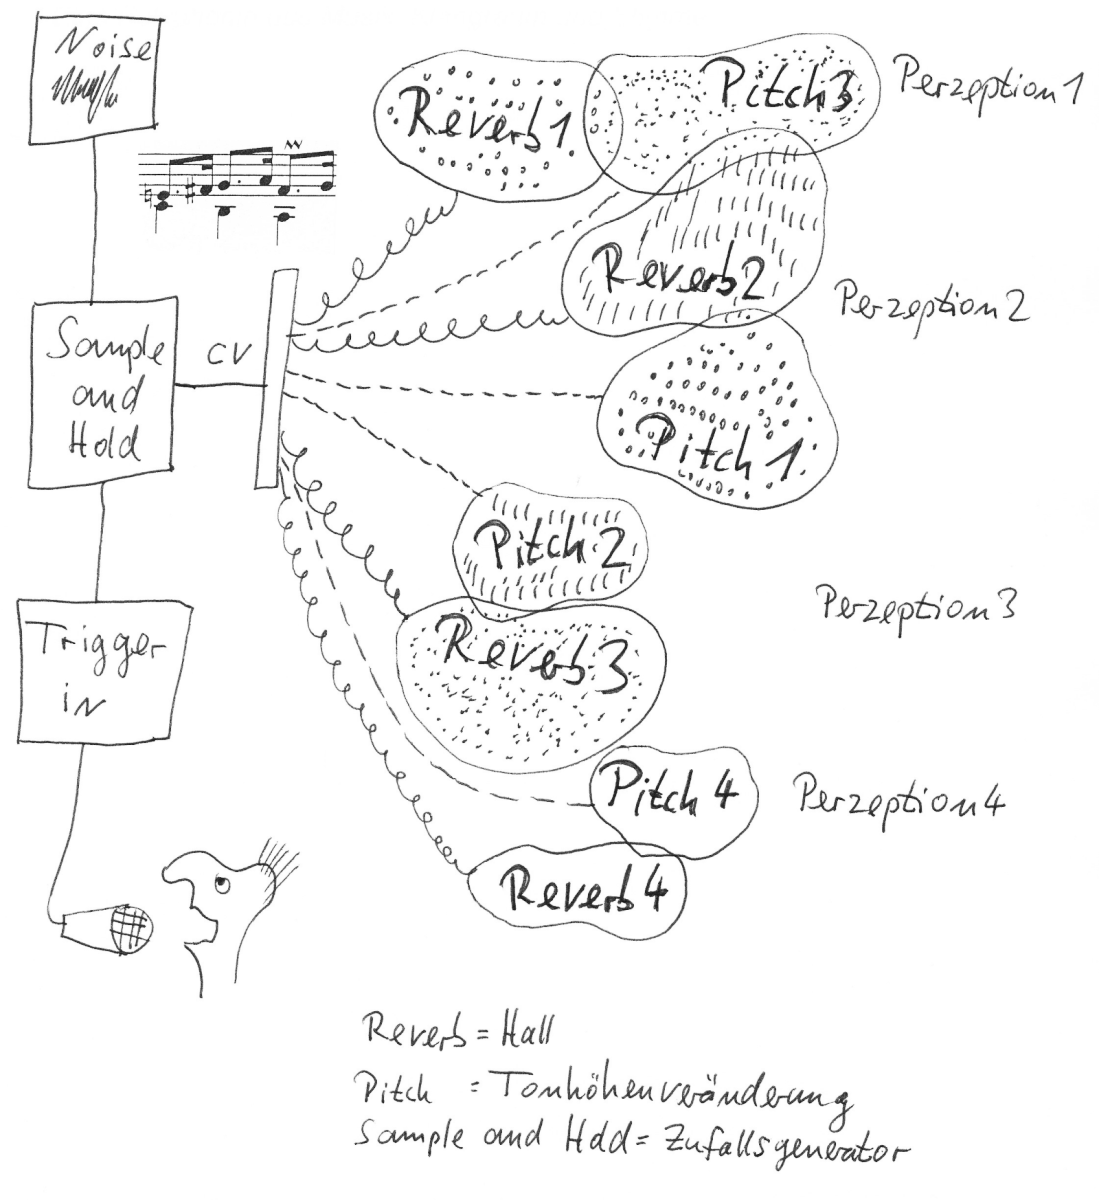 Noise
Reverb1
Pitch3
Perzeption1
Reverb2
Perzeption2
Sample
and
Hold
CV
Pitch 1
Pitch 2
Perzeption3
Reverb3
Trigger
in
Pitch 4
Perzeption4
Reverb4
Reverb = Hall
Pitch = Tonhöhenveränderung
Sample and Hold = Zufallsgenerator